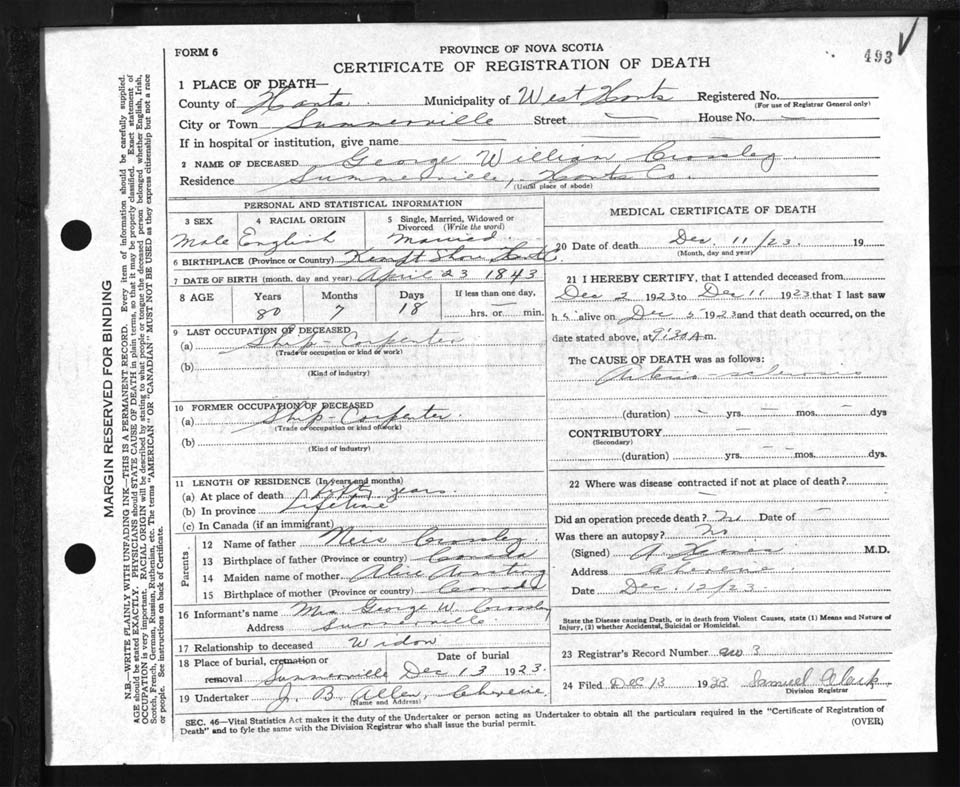 493
FORM 6
PROVINCE OF NOVA SCOTIA
CERTIFICATE OF REGISTRATION OF DEATH
1 PLACE OF DEATH—
County of Hants. Municipality of West Hants Registered No.
(For use of Registrar General only)
City or Town Summerville Street — House No. —
If in hospital or institution, give name — — —
2 NAME OF DECEASED George William Crossley.
Residence Summerville, Hants Co.
(Usual place of abode)
PERSONAL AND STATISTICAL INFORMATION
3 SEX Male
4 RACIAL ORIGIN English
5 Single, Married, Widowed or Divorced (Write the word) Married.
6 BIRTHPLACE (Province or Country) Kempt Shore Hants
7 DATE OF BIRTH (month, day and year) April 23 1843
8 AGE Years Months Days If less than one day,
80 7 18 hrs. or min.
9 LAST OCCUPATION OF DECEASED
(a) Ship-Carpenter
(Trade or occupation or kind of work)
(b)
(Kind of industry)
10 FORMER OCCUPATION OF DECEASED
(a) Ship-Carpenter.
(Trade or occupation or kind of work)
(b)
(Kind of industry)
11 LENGTH OF RESIDENCE (In years and months)
(a) At place of death years.
(b) In province Lifetime
(c) In Canada (if an immigrant)
Parents
12 Name of father Crossley
13 Birthplace of father (Province or country) Canada
14 Maiden name of mother Alice
15 Birthplace of mother (Province or country) Canada
16 Informant's name Mrs George W. Crossley
Address Summerville.
17 Relationship to deceased Widow
18 Place of burial, cremation or removal Summerville Date of burial Dec 13 1923.
19 Undertaker J. B. Allen, Cheverie.
(Name and Address)
MEDICAL CERTIFICATE OF DEATH
20 Date of death Dec. 11/23. 19
(Month, day and year)
21 I HEREBY CERTIFY, that I attended deceased from
Dec 2 1923 to Dec 11 1923 that I last saw
h alive on Dec 5 1923 and that death occurred, on the
date stated above, at 9:30 A m.
The CAUSE OF DEATH was as follows:
Arterio-sclerosis
(duration) — yrs. — mos. — dys
CONTRIBUTORY — —
(Secondary)
(duration) — yrs. — mos. — dys.
22 Where was disease contracted if not at place of death?
—
Did an operation precede death? No Date of —
Was there an autopsy? No
(Signed) M.D.
Address Cheverie.
Date Dec. 12/23
State the Disease causing Death, or in death from Violent Causes, state (1) Means and Nature of
Injury, (2) whether Accidental, Suicidal or Homicidal.
23 Registrar's Record Number 3
24 Filed Dec 13 1923 Samuel Clark
Division Registrar
SEC. 46—Vital Statistics Act makes it the duty of the Undertaker or person acting as Undertaker to obtain all the particulars required in the "Certificate of Registration of
Death" and to fyle the same with the Division Registrar who shall issue the burial permit.
(OVER)
MARGIN RESERVED FOR BINDING
N.B.—WRITE PLAINLY WITH UNFADING INK—THIS IS A PERMANENT RECORD. Every item of information should be carefully supplied.
AGE should be stated EXACTLY. PHYSICIANS should STATE CAUSE OF DEATH in plain terms, so that it may be properly classified. Exact statement of
OCCUPATION is very important. RACIAL ORIGIN will be described by stating to what people or tongue the deceased person belonged whether English, Irish,
Scotch, French, German, Russian, Ruthenian, etc. The terms "AMERICAN" OR "CANADIAN" MUST NOT BE USED as they express citizenship but not a race
or people. See instructions on back of Certificate.